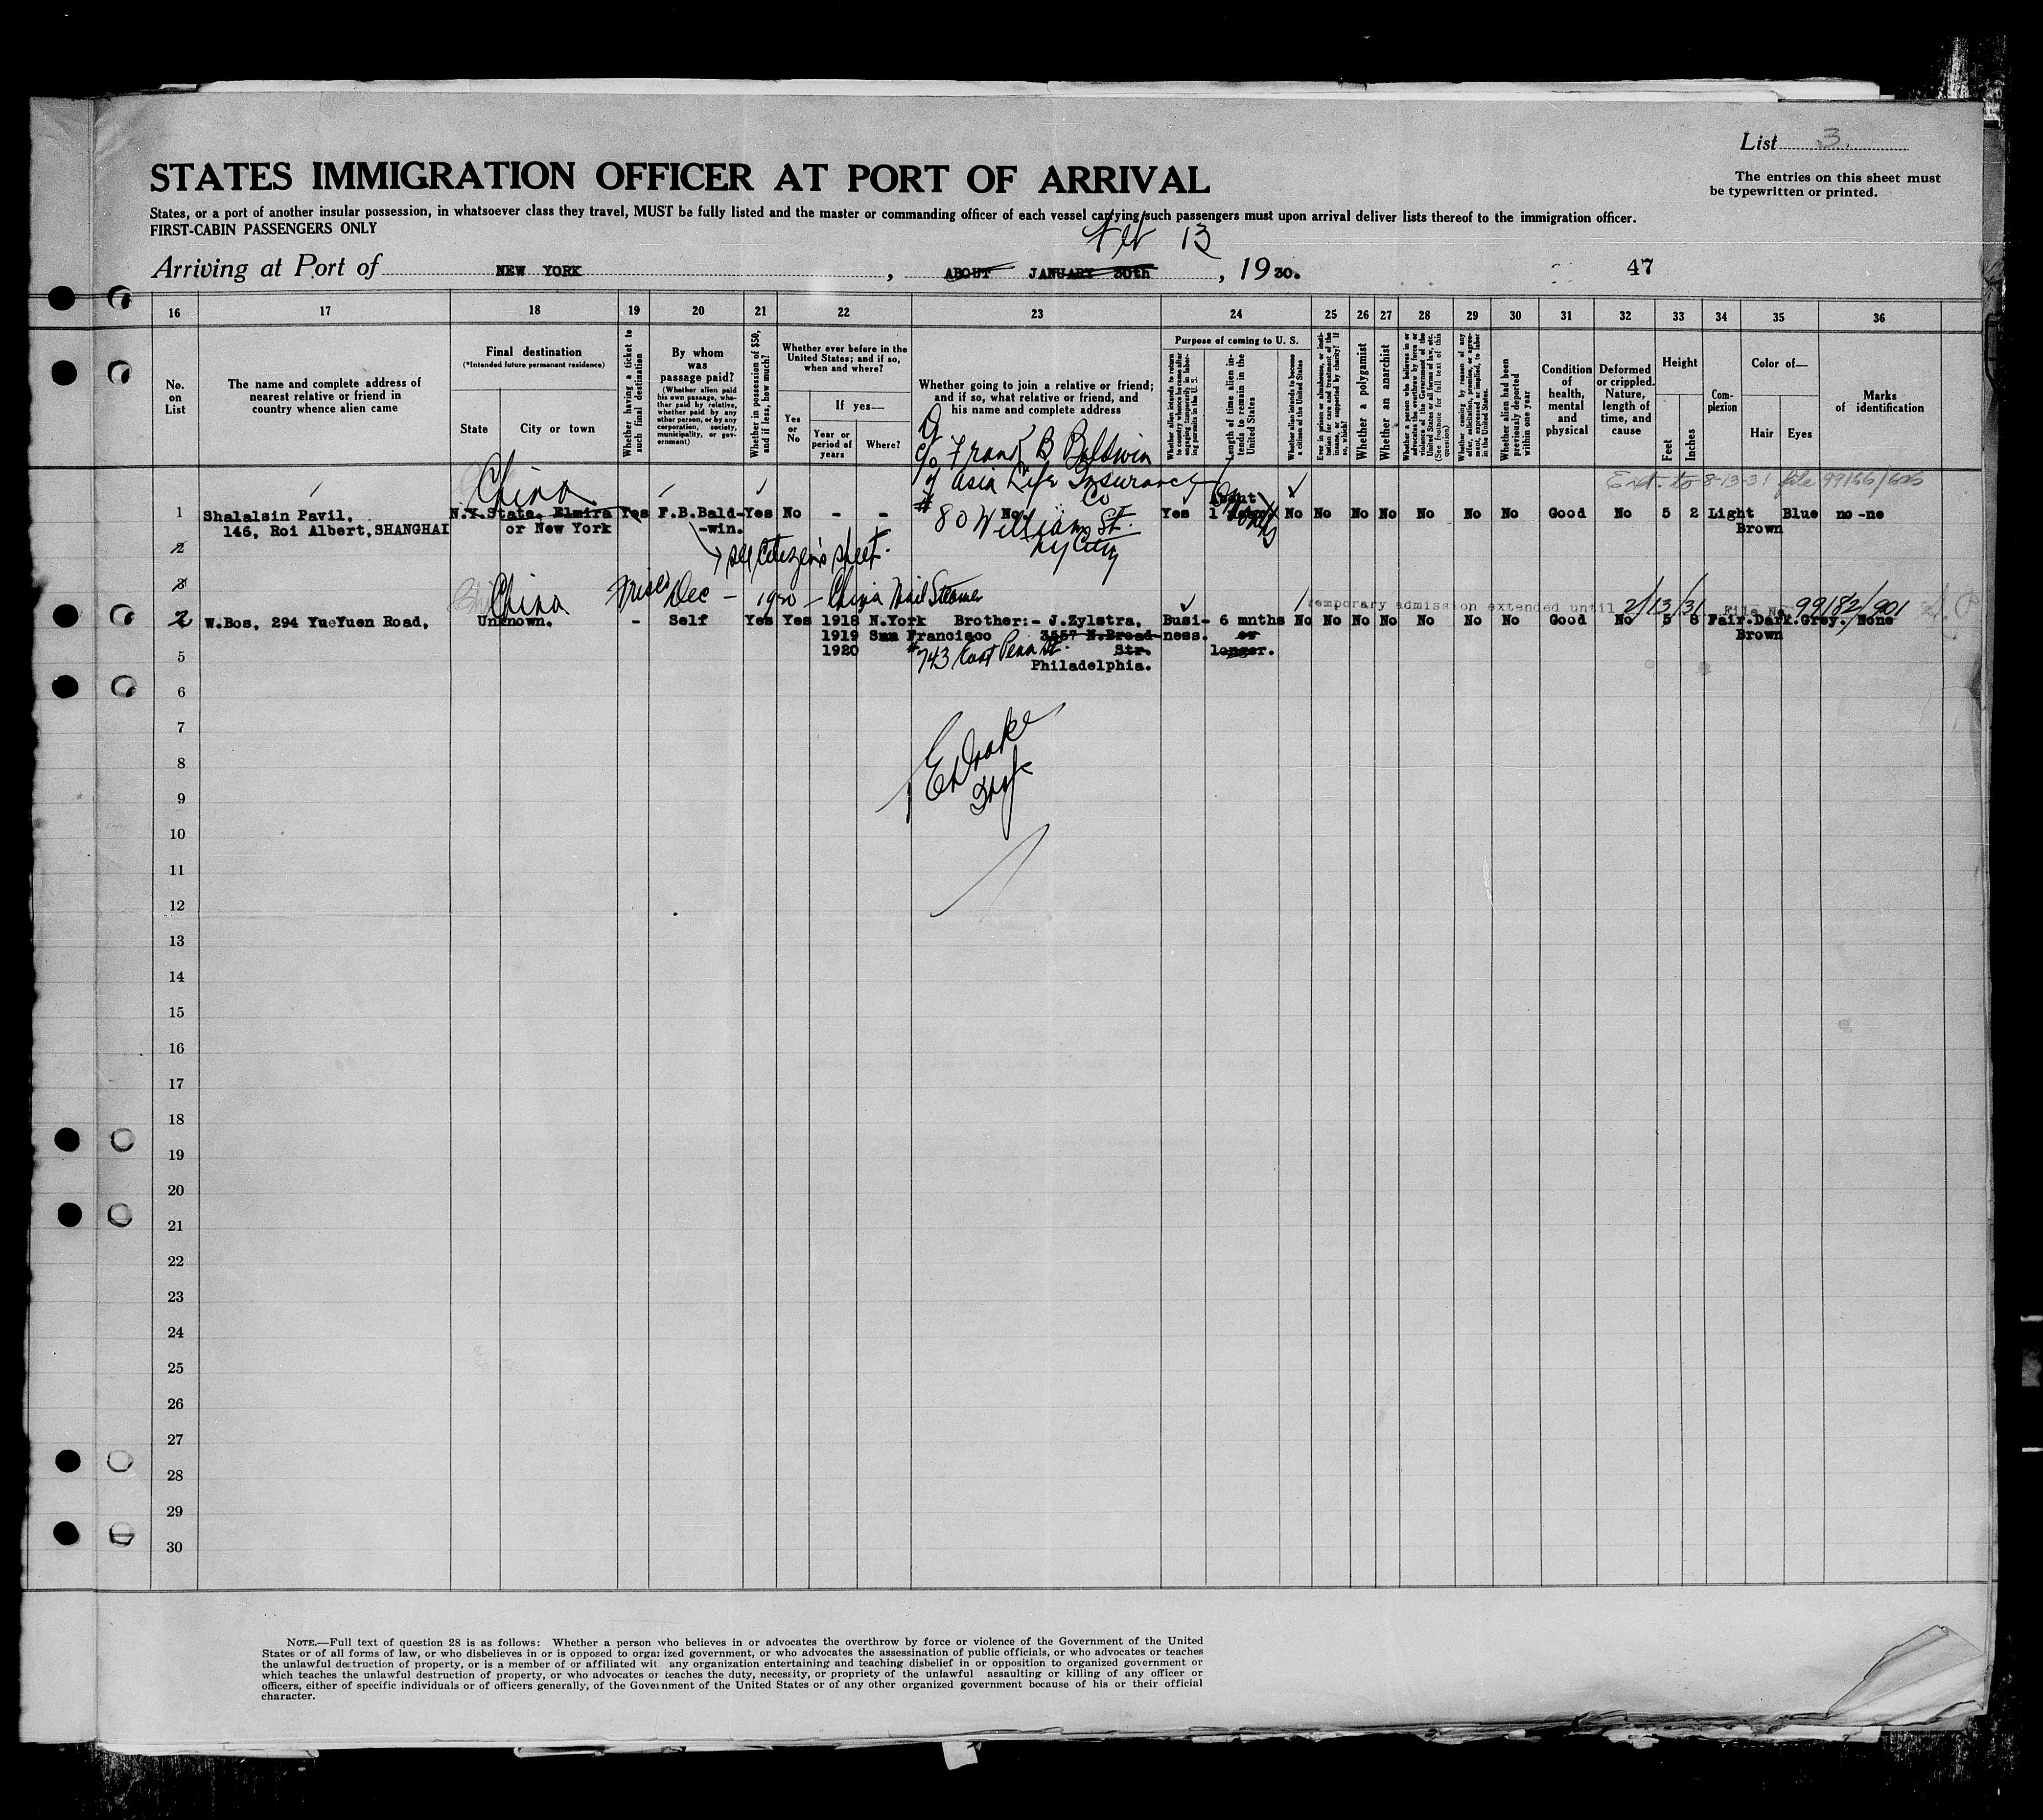 List 3
STATES IMMIGRATION OFFICER AT PORT OF ARRIVAL
The entries on this sheet must
be typewritten or printed.
States, or a port of another insular possession, in whatsoever class they travel, MUST be fully listed and the master or commanding officer of each vessel carrying such passengers must upon arrival deliver lists thereof to the immigration officer.
FIRST-CABIN PASSENGERS ONLY
Feb 13
Arriving at Port of NEW YORK , ABOUT JANUARY 30th , 1930. 47
16 17 18 19 20 21 22 23 24 25 26 27 28 29 30 31 32 33 34 35 36
No. on List
The name and complete address of nearest relative or friend in country whence alien came
Final destination
(*Intended future permanent residence)
State
City or town
Whether having a ticket to such final destination
By whom was passage paid?
(Whether alien paid his own passage, whether paid by relative, whether paid by any other person, or by any corporation, society, municipality, or government)
Whether in possession of $50, and if less, how much?
Whether ever before in the United States; and if so, when and where?
Yes or No
If yes—
Year or period of years
Where?
Whether going to join a relative or friend; and if so, what relative or friend, and his name and complete address
Purpose of coming to U. S.
Whether alien intends to return to country whence he came after engaging temporarily in laboring permits in the U. S.
Length of time alien intends to remain in the United States
Whether alien intends to become a citizen of the United States
Ever in prison or almshouse, or institution for care and treatment of the insane, or supported by charity? If so, which?
Whether a polygamist
Whether an anarchist
Whether a person who believes in or advocates the overthrow by force or violence of the Government of the United States or all forms of law, etc. (See footnote for full text of this question)
Whether coming by reason of any offer, solicitation, promise, or agreement, expressed or implied, to labor in the United States.
Whether alien had been previously deported within one year
Condition of health, mental and physical
Deformed or crippled. Nature, length of time, and cause
Height
Feet
Inches
Complexion
Color of—
Hair
Eyes
Marks of identification
c/o Frank B Baldwin
of Asia Life Insurance
Co
# 80 William St.
NY City
China
Ext. to 8-13-31 file 99166/606
1 Shalalsin Pavil, N.Y.State, Elmira Yes F.B.Bald- Yes No - - No. Yes About 1 year No No No No No No No Good No 5 2 Light Blue no-ne
146, Roi Albert, SHANGHAI or New York -win. 6 months Brown
see Citizen's sheet.
2
3
China Frisco Dec - 1920 - China Mail Steamer
Temporary admission extended until 2/13/31 File No. 99182/901
2 W.Bos, 294 YueYuen Road, Unknown. - Self Yes Yes 1918 N.York Brother:- J.Zylstra, Busi- 6 mnths No No No No No No No Good No 5 8 Fair.Dark.Grey. None
1919 San Francisco 3557 N.Broad- ness. or Brown
1920 #743 East Penn St. Str. longer.
Philadelphia.
5
6
7
8
9
10
11
12
13
14
15
16
17
18
19
20
21
22
23
24
25
26
27
28
29
30
E Drake
Insp
NOTE.—Full text of question 28 is as follows: Whether a person who believes in or advocates the overthrow by force or violence of the Government of the United
States or of all forms of law, or who disbelieves in or is opposed to organized government, or who advocates the assassination of public officials, or who advocates or teaches
the unlawful destruction of property, or is a member of or affiliated with any organization entertaining and teaching disbelief in or opposition to organized government or
which teaches the unlawful destruction of property, or who advocates or teaches the duty, necessity, or propriety of the unlawful assaulting or killing of any officer or
officers, either of specific individuals or of officers generally, of the Government of the United States or of any other organized government because of his or their official
character.